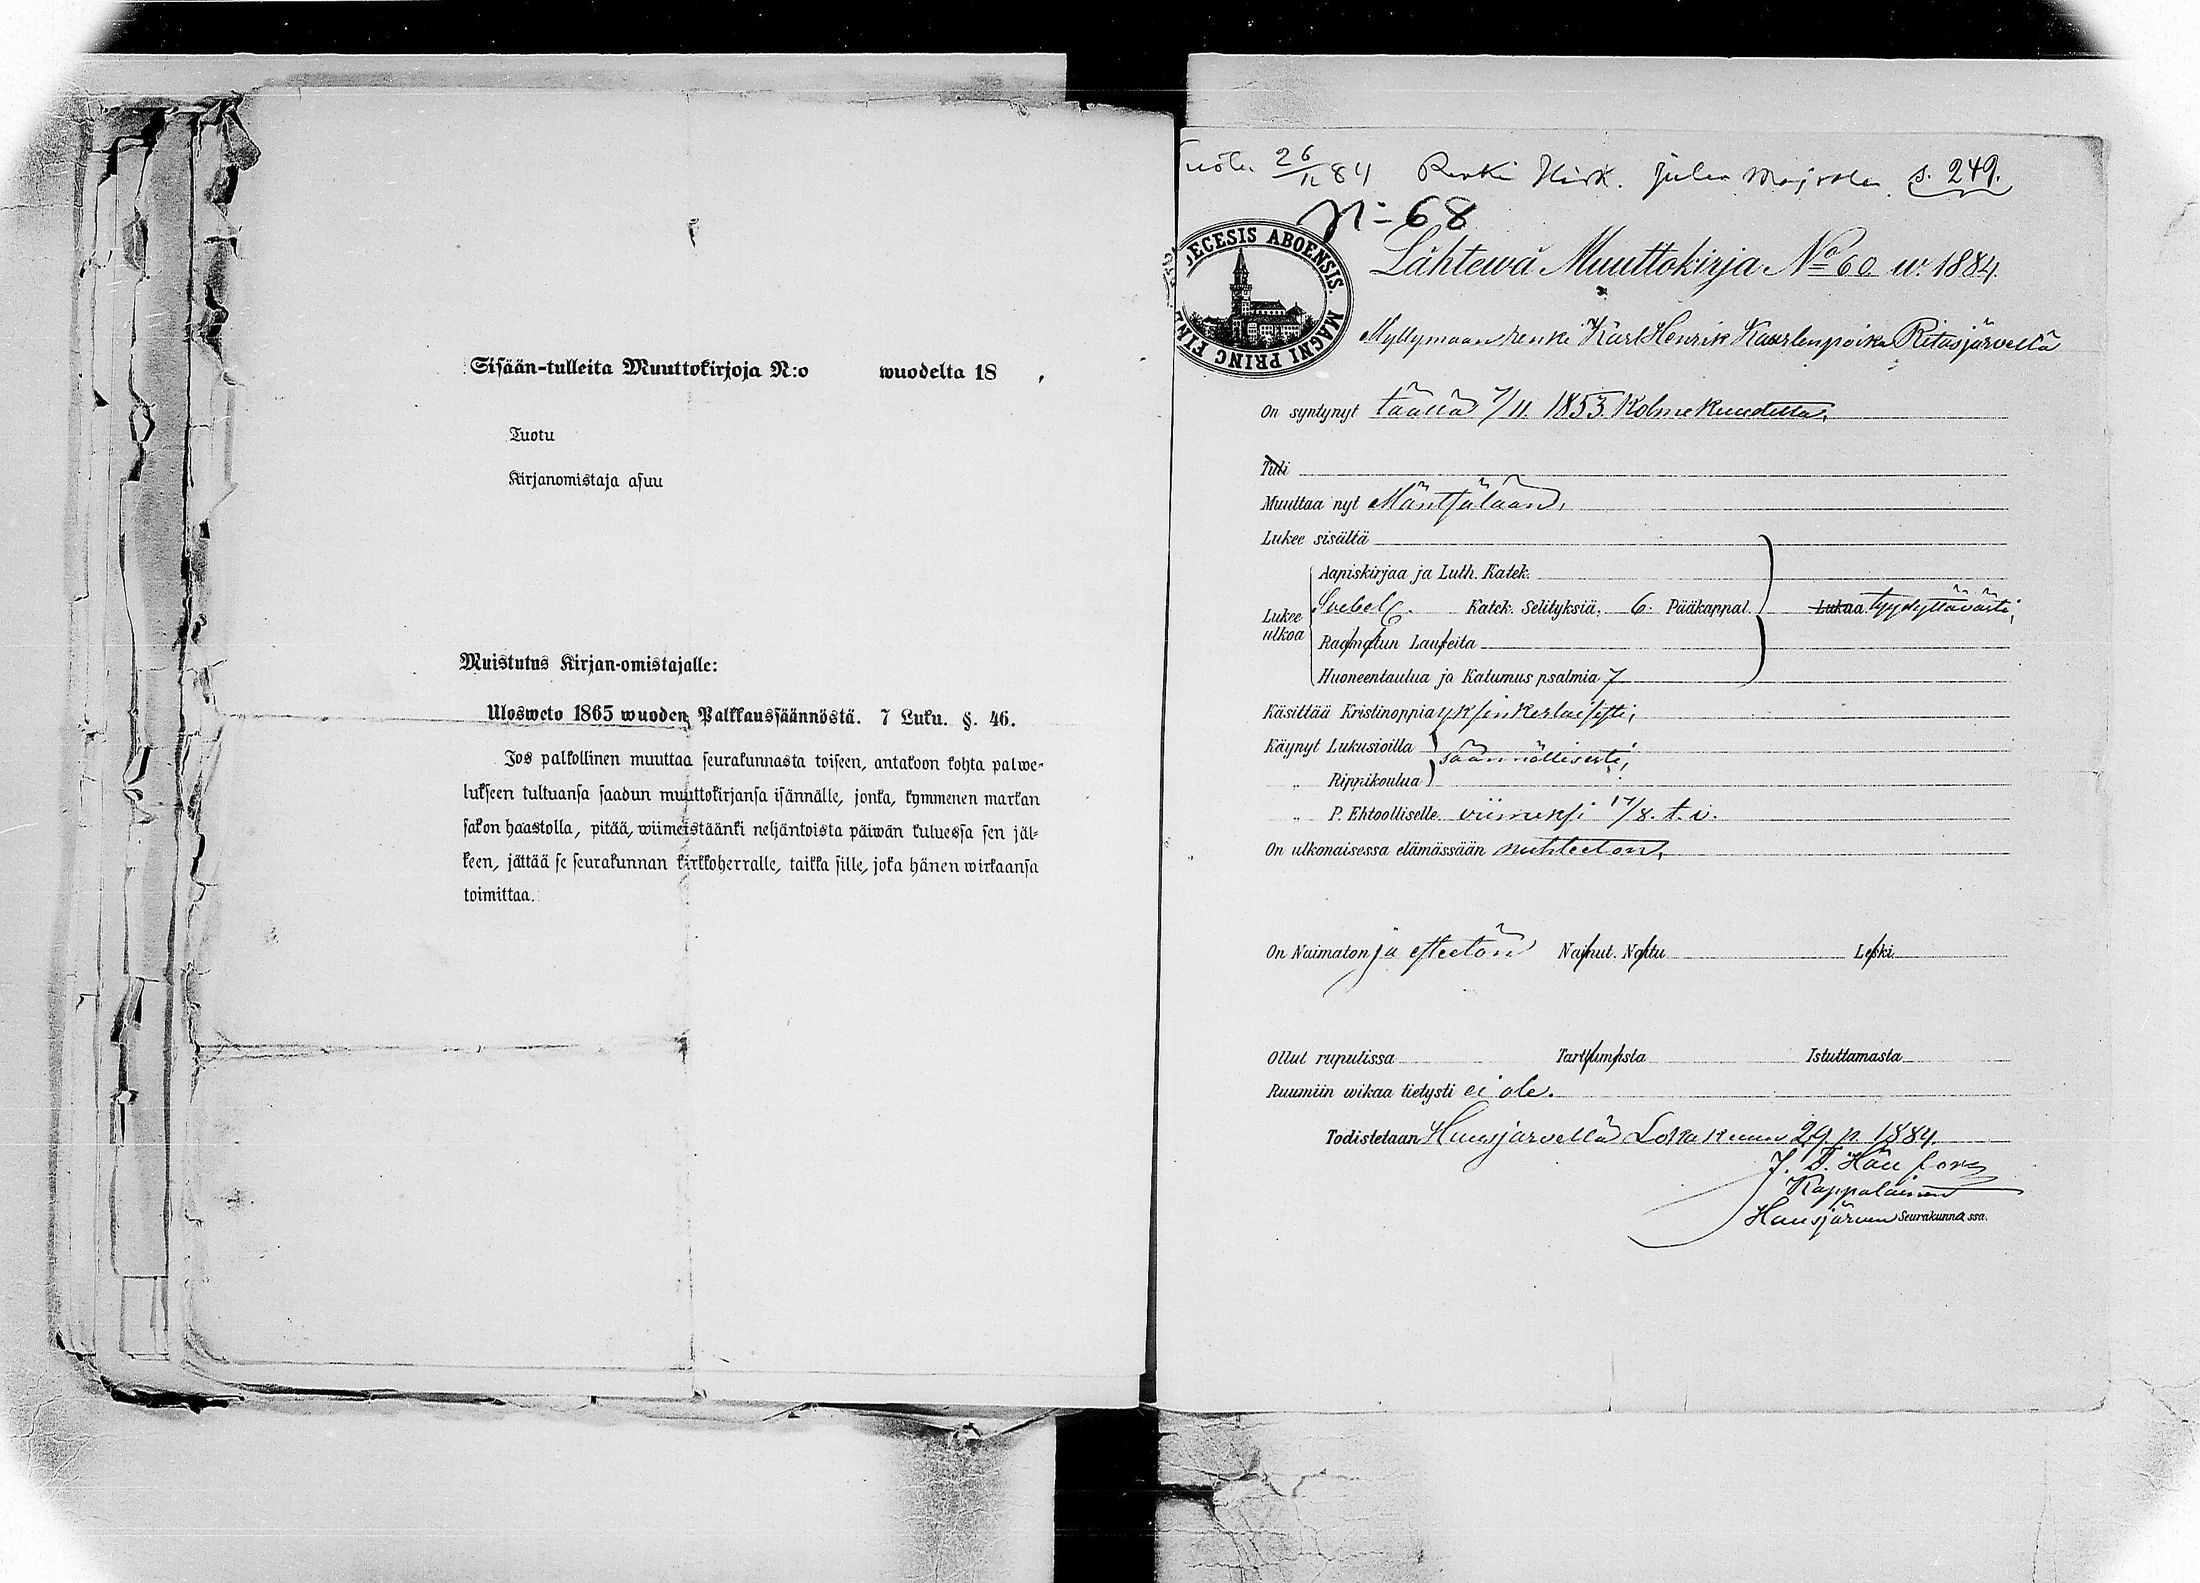 Sisään-tulleita Muuttokirjoja N:o wuodelta 18 ,
Tuotu
Kirjanomistaja asuu
Muistutus Kirjan-omistajalle:
Ulosweto 1865 wuoden Palkkaussäännöstä. 7 Luku. §. 46.
Jos palkollinen muuttaa seurakunnasta toiseen, antakoon kohta palwe-
lukseen tultuansa saadun muuttokirjansa isännälle, jonka, kymmenen markan
sakon haastolla, pitää, wiimeistäänki neljäntoista päiwän kuluessa sen jäl-
keen, jättää se seurakunnan kirkkoherralle, taikka sille, joka hänen wirkaansa
toimittaa.
26/11 84 Renki s. 249.
N:68
DIECESIS ABOENSIS. MAGNI PRINC FINL
Lähtewä Muuttokirja No 60 w. 1884.
Myllymaan renki Karl Henrik Kaarlenpoika Ritasjärveltä
On syntynyt täällä 7/11. 1853. Kolmekuudetta.
Tuli
Muuttaa nyt Mäntsälään.
Lukee sisältä
Aapiskirjaa ja Luth. Katek.
Lukee ulkoa Svebel. Katek. Selityksiä. 6. Pääkappal. Lukua. tyydyttävästi;
Raamatun Lauseita
Huoneentaulua ja Katumus psalmia 7
Käsittää Kristinoppia yksinkertaisesti;
Käynyt Lukusioilla säännöllisesti;
„ Rippikoulua
„ P. Ehtoolliselle viimeksi 17/8. t. v.
On ulkonaisessa elämässään nuhteeton.
On Naimaton ja esteetön Nainut. Naitu Leski
Ollut rupulissa Tarttumasta Istuttamasta
Ruumiin wikaa tietysti ei ole.
Todistetaan Hausjärvellä Lokakuun 29 p. 1884.
Kappalainen
Hausjärven Seurakunnassa.